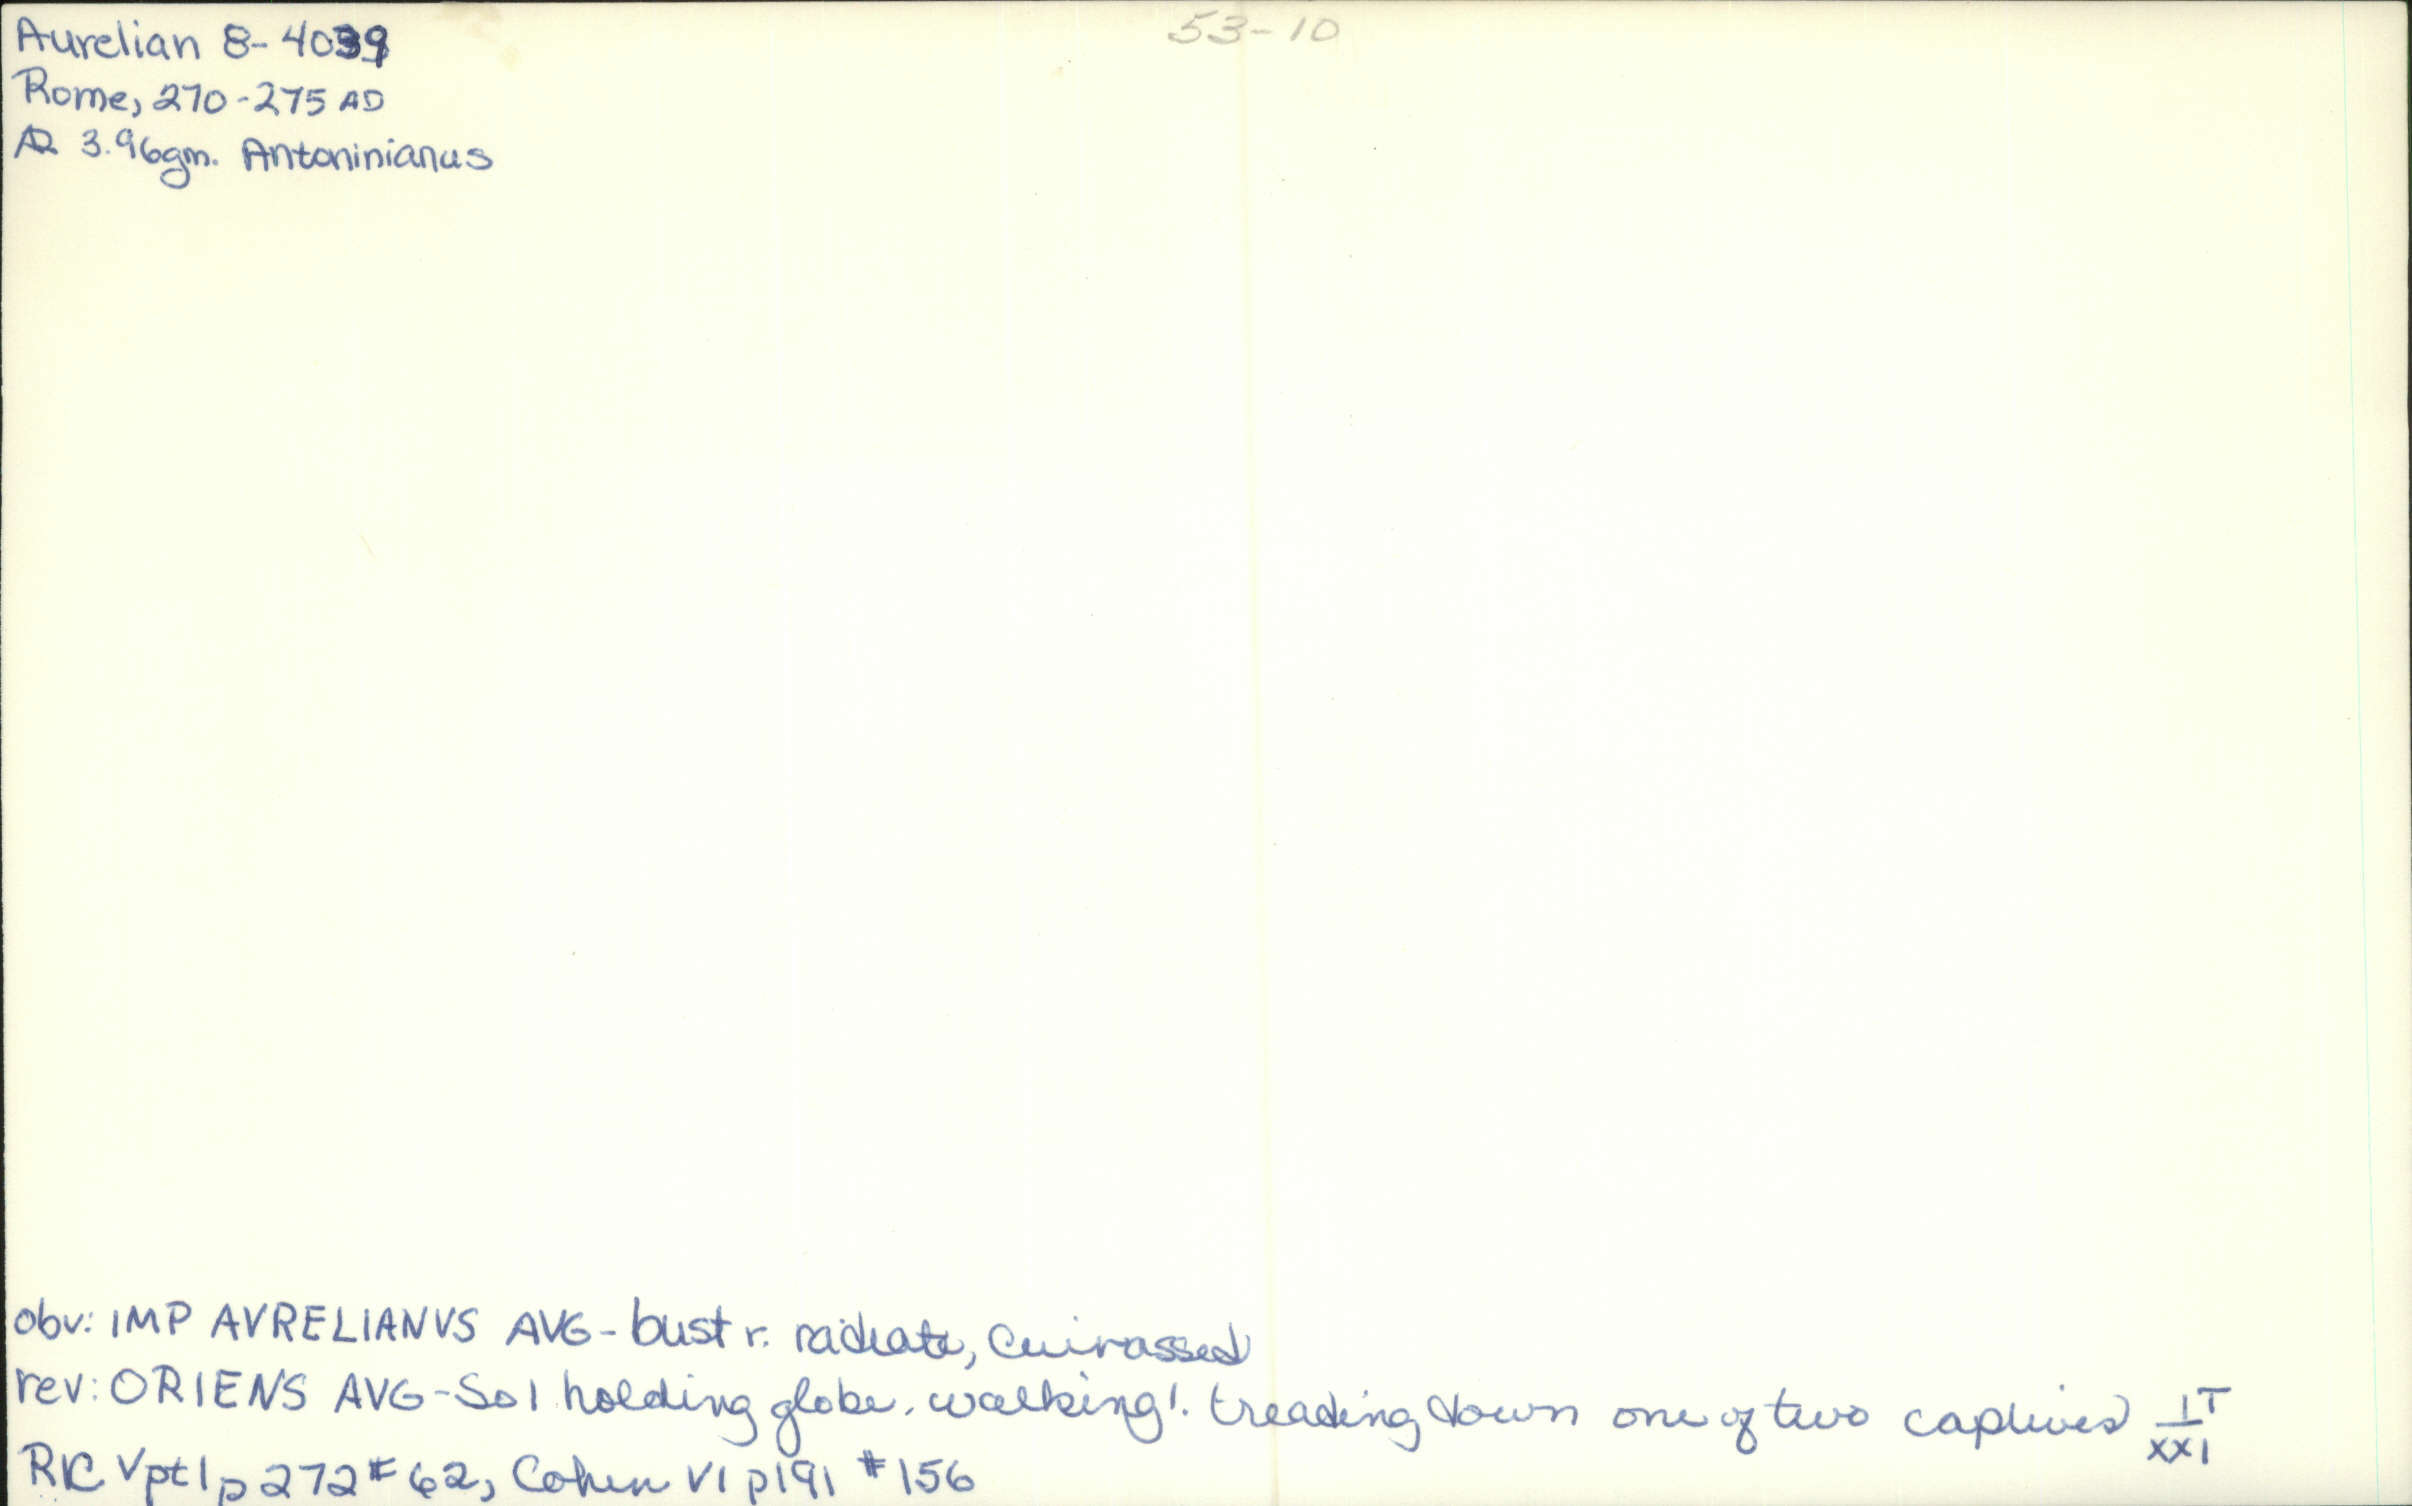 53-10
Aurelian 8-4039
Rome, 270-275 AD
AR 3.96gm. Antoninianus
obv: IMP AVRELIANVS AVG - bust r. radiate, cuirassed
rev: ORIENS AVG - Sol holding globe. walking l. treading down one of two captives |T
XXI
RIC V pt 1 p 272 # 62, Cohen VI p 191 # 156